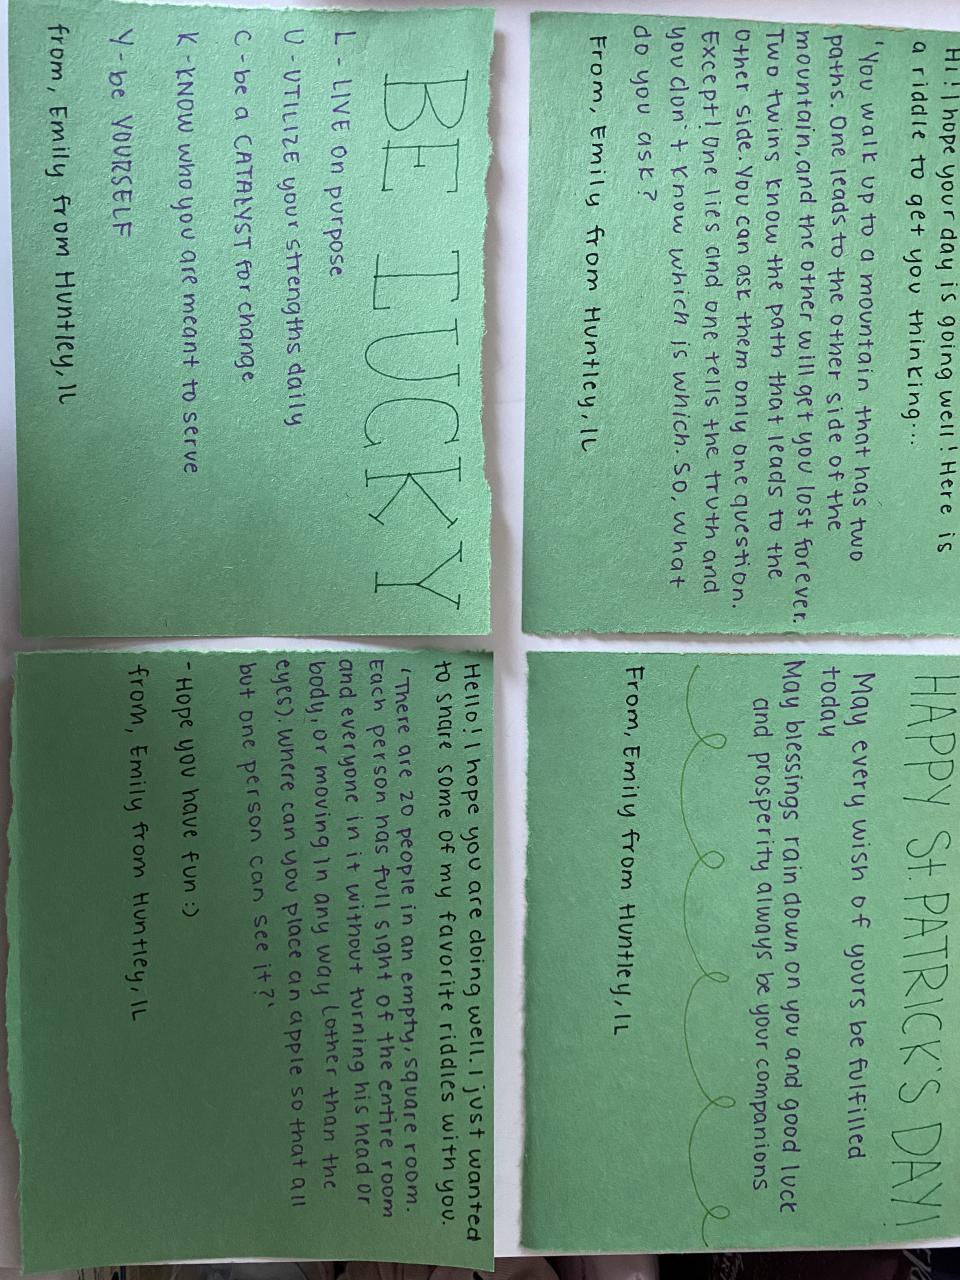 Hi! I hope your day is going well! Here is
a riddle to get you thinking...
'You walk up to a mountain that has two
paths. One leads to the other side of the
mountain, and the other will get you lost forever.
Two twins know the path that leads to the
other side. You can ask them only one question.
Except! One lies and one tells the truth and
you don't know which is which. So, what
do you ask?
From, Emily from Huntley, IL
HAPPY St. PATRICK'S DAY!
May every wish of yours be fulfilled
today
May blessings rain down on you and good luck
and prosperity always be your companions
From, Emily from Huntley, IL
BE LUCKY
L - LIVE on purpose
U - UTILIZE your strengths daily
C - be a CATALYST for change
K - KNOW who you are meant to serve
Y - be YOURSELF
from, Emily from Huntley, IL
Hello! I hope you are doing well. I just wanted
to share some of my favorite riddles with you.
'There are 20 people in an empty, square room.
Each person has full sight of the entire room
and everyone in it without turning his head or
body, or moving in any way (other than the
eyes). Where can you place an apple so that all
but one person can see it?'
- Hope you have fun :)
from, Emily from Huntley, IL